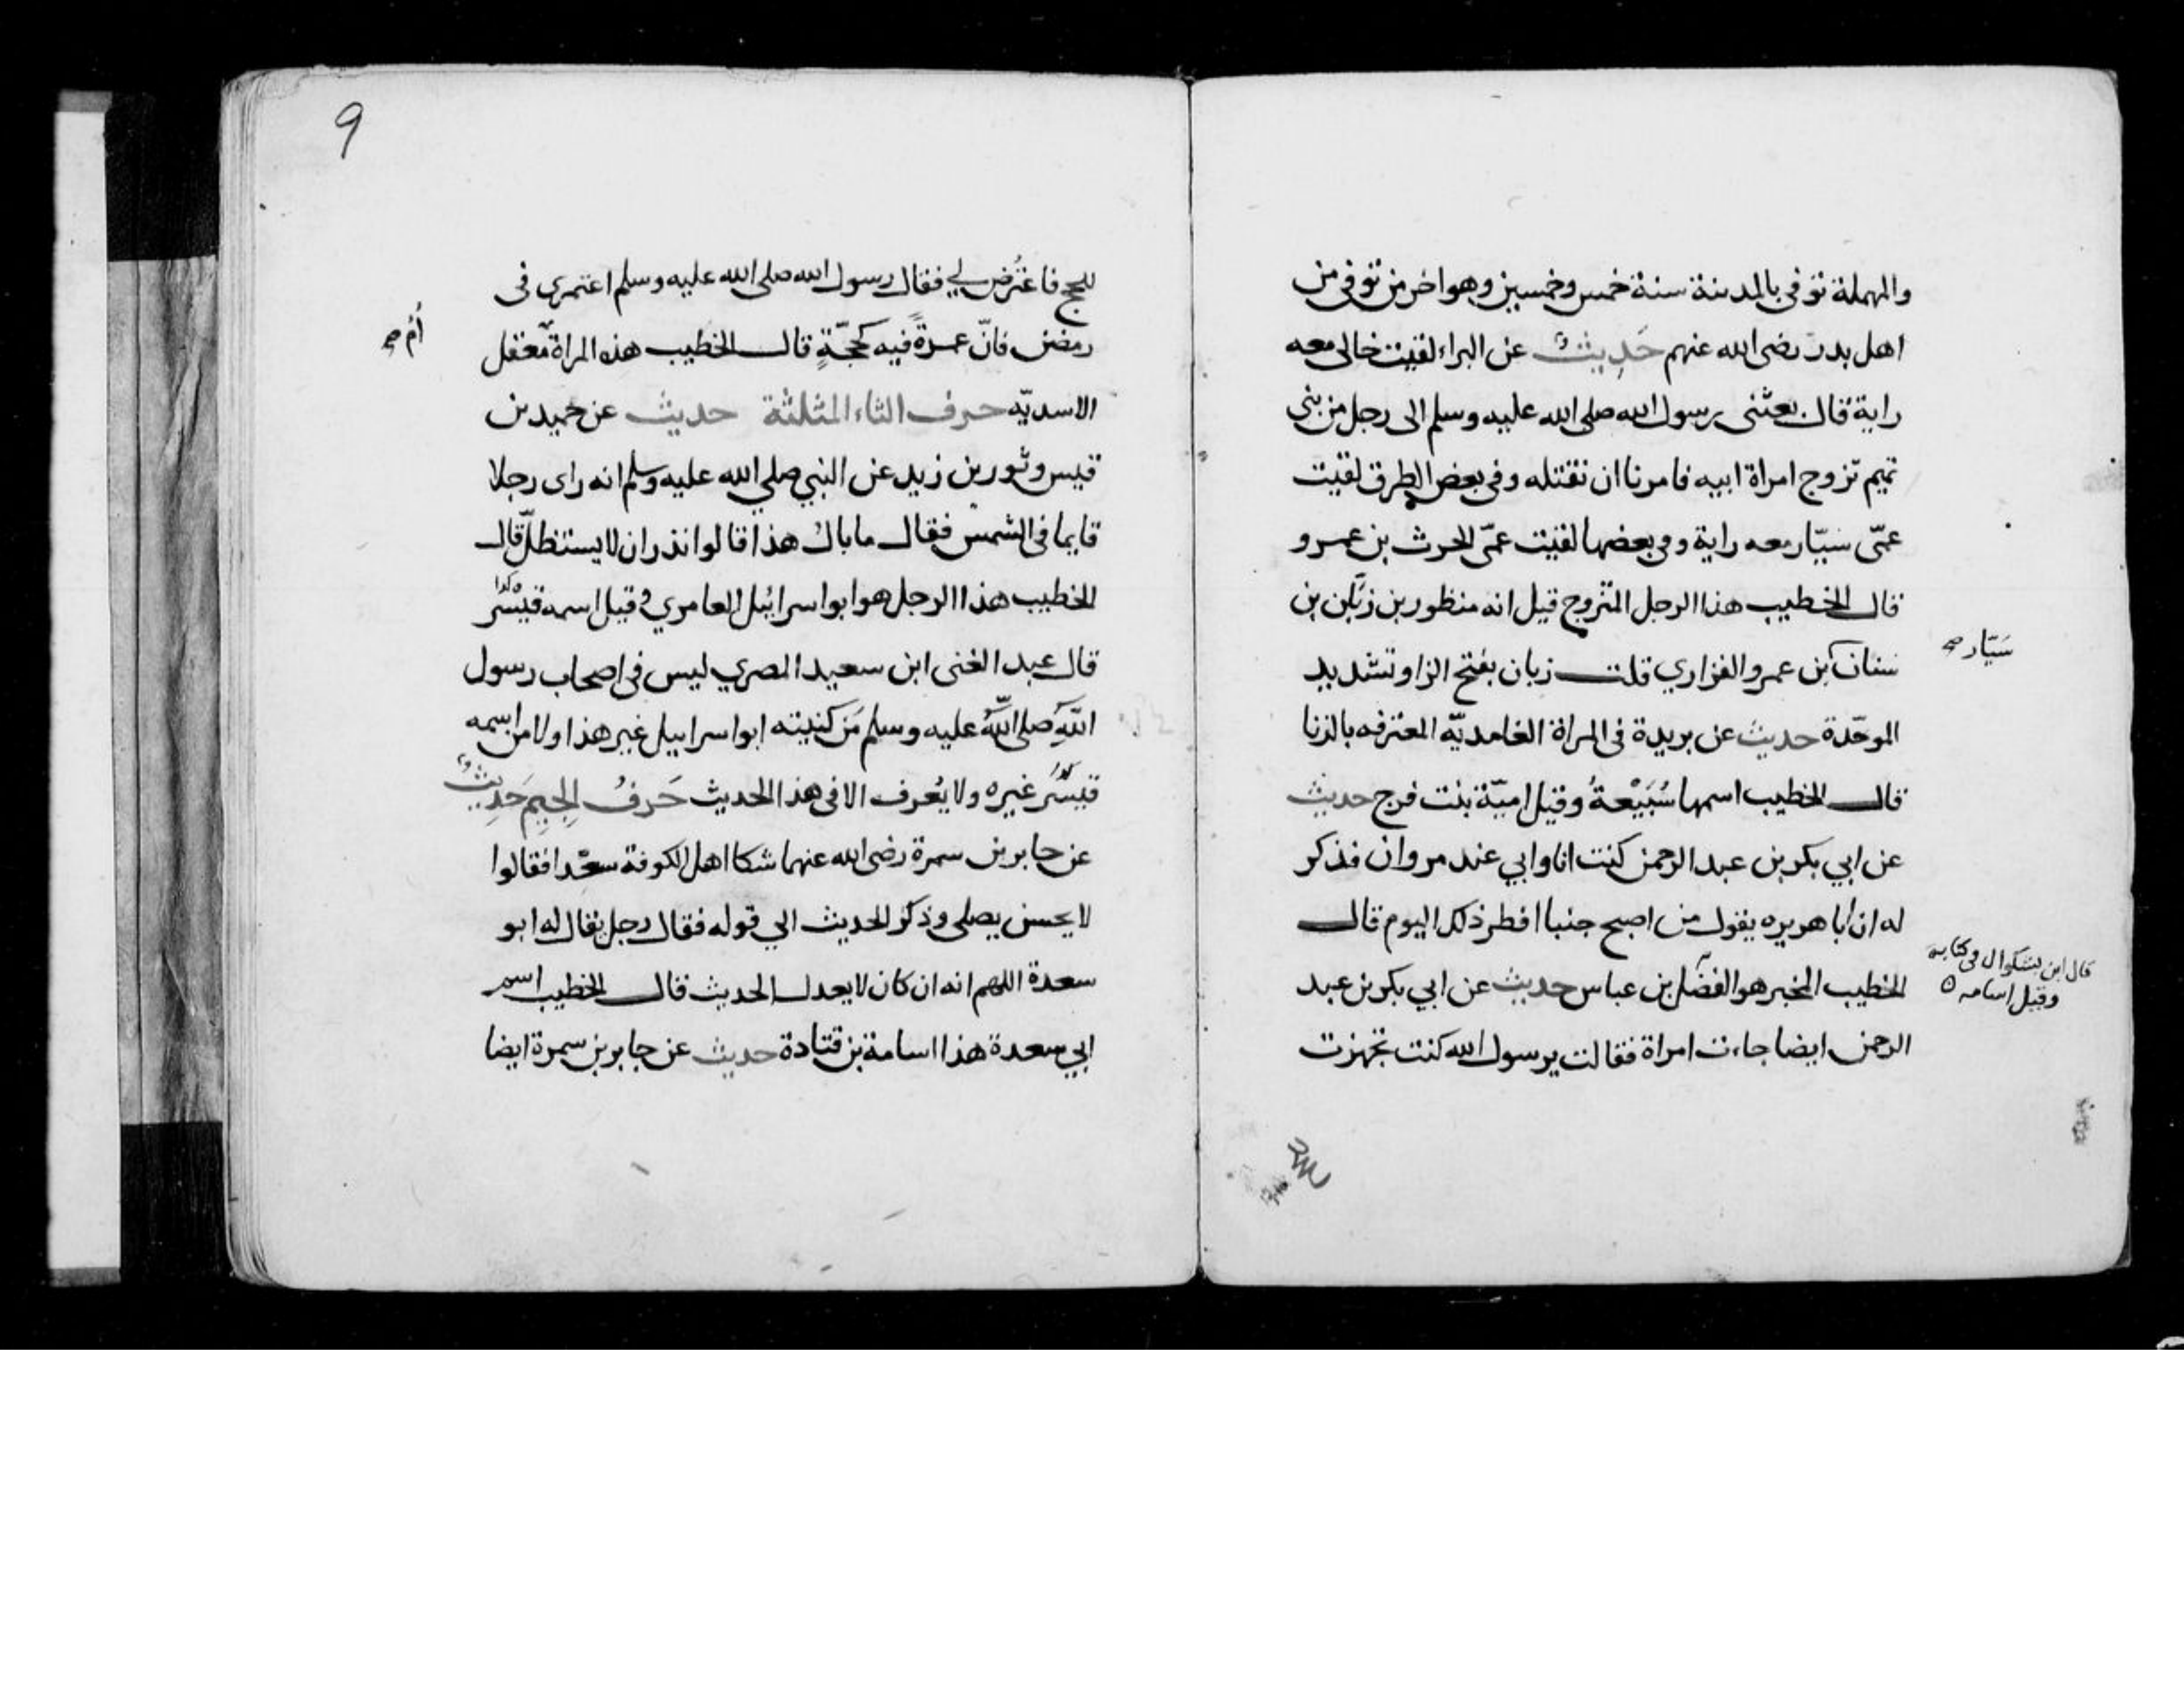 والمهملة توفى بالمدينة سنة خمس وخمسين وهو اخر من توفى من
اهل بدر رضى الله عنهم حَدِيثٌ عن البراء لقيت خالى معه
راية قال بعثنى رسول الله صلى الله عليه وسلم الى رجل من بنى
تميم تزوج امراة ابيه فامرنا ان نقتله وفى بعض الطرق لقيت
عمّى سيّار معه راية وفى بعضها لقيت عمّى الحرث بن عمرو
قال الخطيب هذا الرجل المتزوج قيل انه منظور بن زبّان بن
سَيّار صح
سنان بن عمرو الفزاري قلت زبان بفتح الزا وتشديد
الموحّدة حديث عن بريدة فى المراة الغامديّه المعترفه بالزنا
قال الخطيب اسمها سُبَيْعةُ وقيل اميّة بنت فرج حديث
عن ابي بكر بن عبد الرحمن كنت انا وابي عند مروان فذكر
له ان ابا هريره يقول من اصبح جنبا افطر ذلك اليوم قال
قال ابن بشكوال فى كتابه
وقيل اسامه ٥
الخطيب المخبر هو الفضل بن عباس حديث عن ابي بكر بن عبد
الرحمن ايضا جاءت امراة فقالت يرسول الله كنت تجهزت
9
للحج فاعتُرض لي فقال رسول الله صلى الله عليه وسلم اعتمرى فى
رمضن فانّ عمرةً فيه كحجّةٍ قال الخطيب هذه المراة معقل
أُم صح
الاسديّه حرف الثاء المثلثة حديث عن حميد بن
قيس وثور بن زيد عن النبي صلي الله عليه وسلم انه راى رجلا
قايما فى الشمس فقال ما بال هذا قالوا نذر ان لا يستظلّ قال
الخطيب هذا الرجل هو ابو اسرائيل العامري وقيل اسمه قيْسَر
كذا
قال عبد الغنى ابن سعيد المصري ليس فى اصحاب رسول
اللَّهِ صلى اللَّهُ عليه وسلم مَن كنيته ابو اسراييل غير هذا ولا من اسمه
قيسَر غيره ولا يُعرف الا فى هذا الحديث حَرفُ الجِيِم حَدِيثٌ
عن جابر بن سمرة رضى الله عنهما شكا اهل الكوفة سعْدا فقالوا
لا يحسن يصلى وذكر الحديث الي قوله فقال رجل يقال له ابو
سعدة اللهم انه ان كان لا يعدل الحديث قال الخطيب اسم
ابي سعدة هذا اسامة بن قتادة حديث عن جابر بن سمرة ايضا